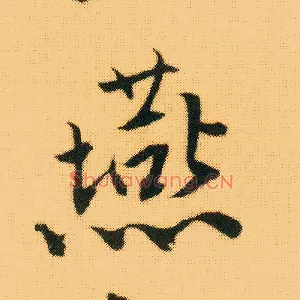 燕
Shufawang.CN